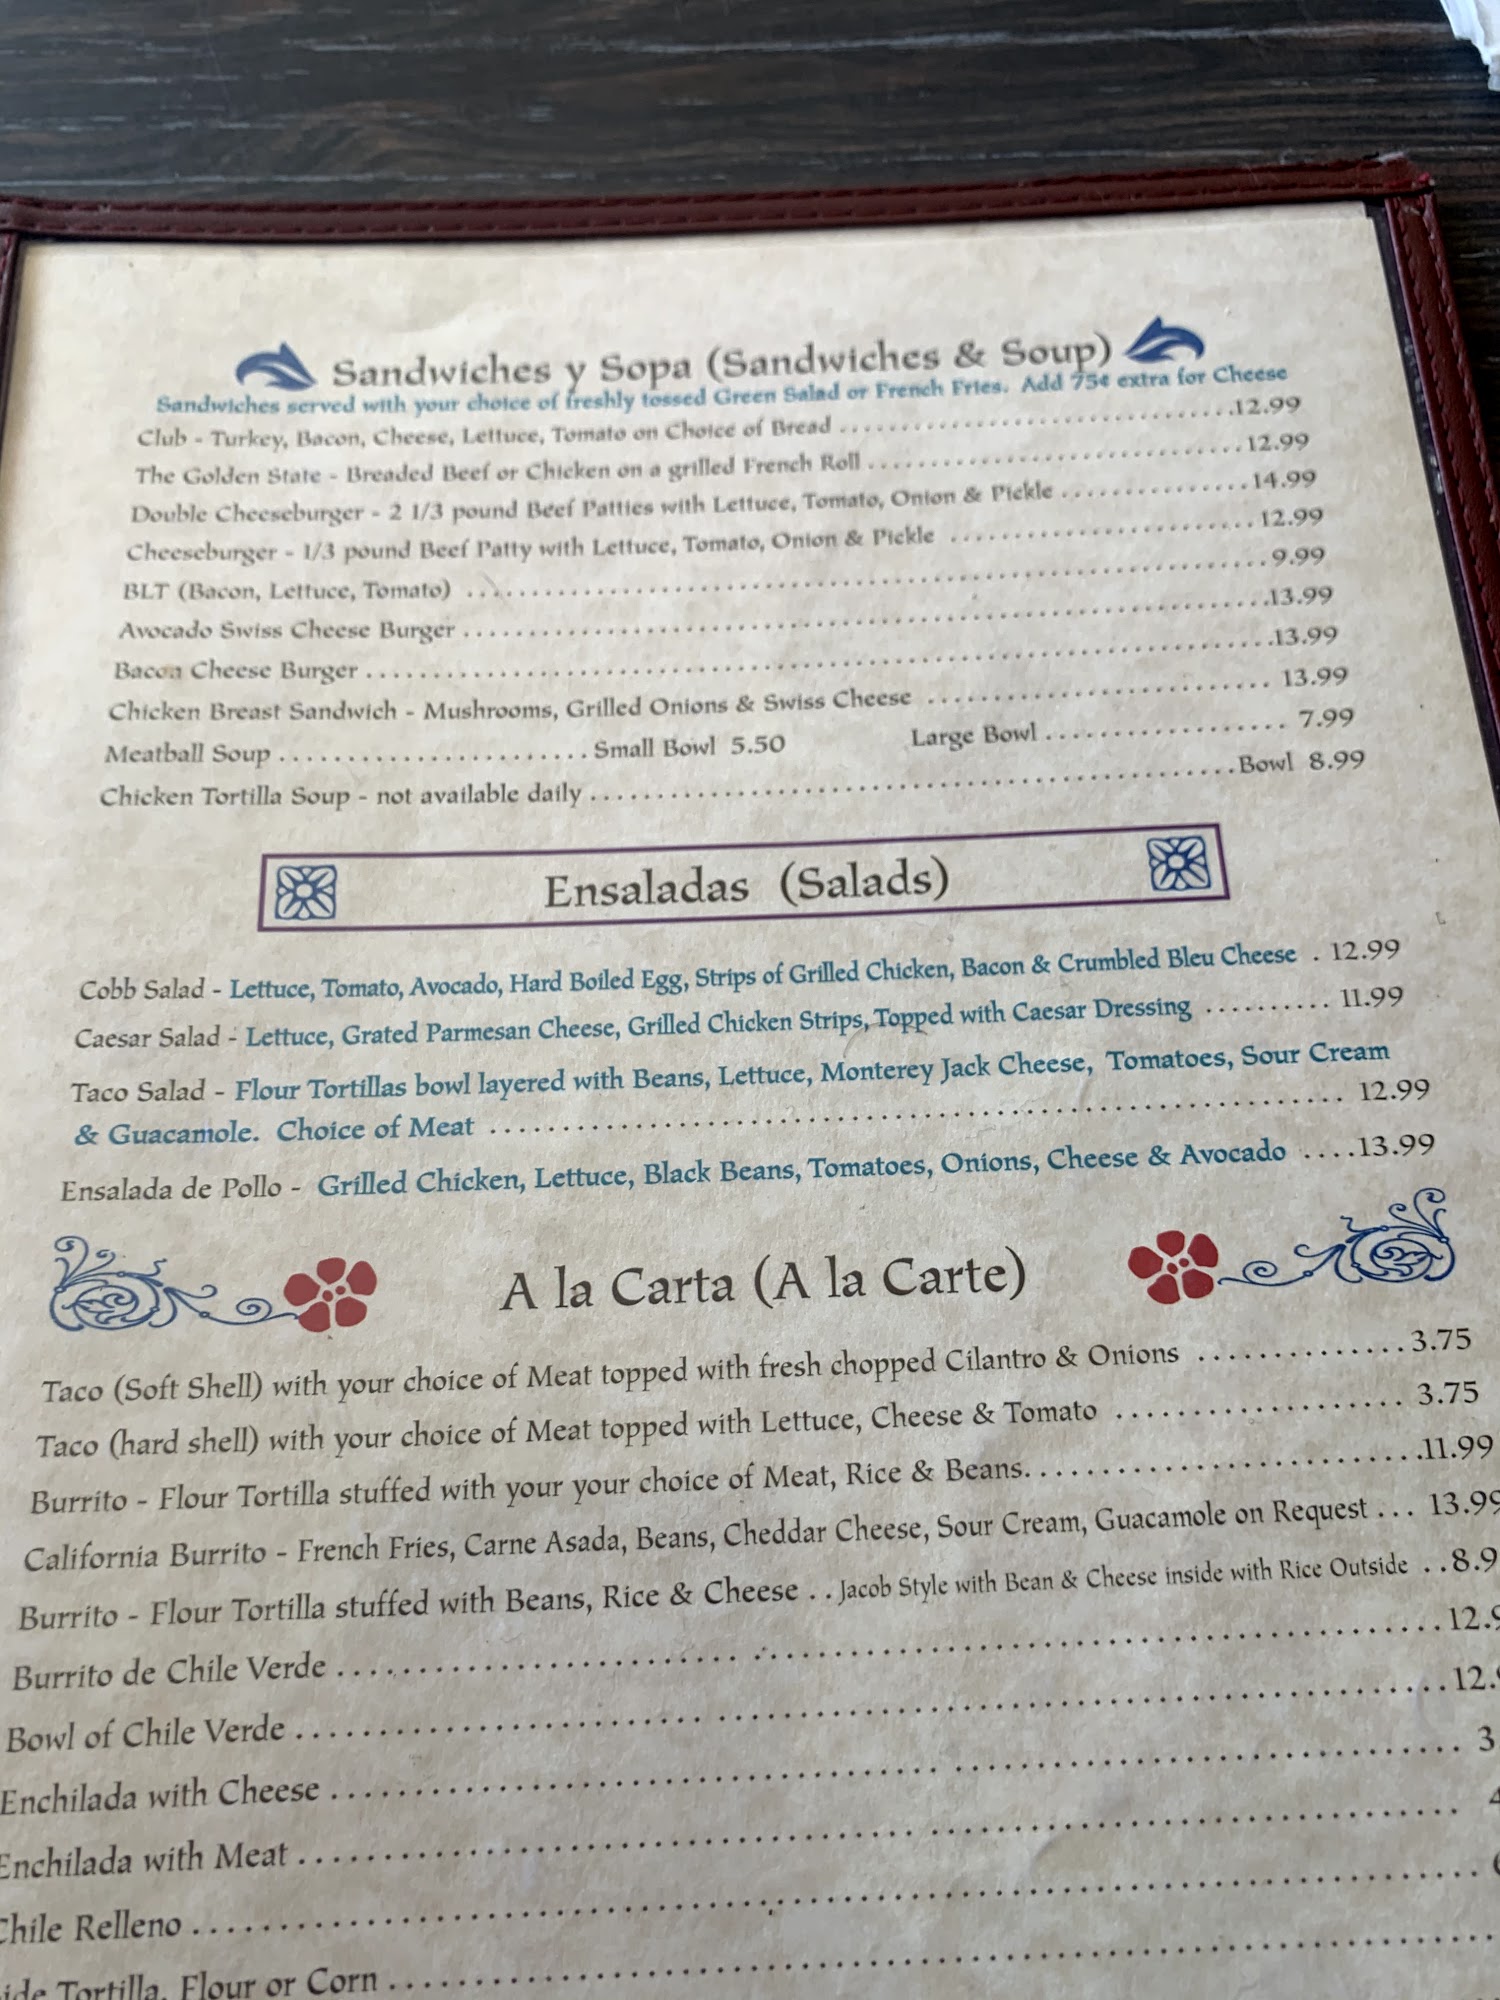 Sandwiches y Sopa (Sandwiches & Soup)
Sandwiches served with your choice of freshly tossed Green Salad or French Fries. Add 75¢ extra for Cheese
Club - Turkey, Bacon, Cheese, Lettuce, Tomato on Choice of Bread ........................12.99
The Golden State - Breaded Beef or Chicken on a grilled French Roll ........................12.99
Double Cheeseburger - 2 1/3 pound Beef Patties with Lettuce, Tomato, Onion & Pickle ..............14.99
Cheeseburger - 1/3 pound Beef Patty with Lettuce, Tomato, Onion & Pickle ......................12.99
BLT (Bacon, Lettuce, Tomato) ........................9.99
Avocado Swiss Cheese Burger ........................13.99
Bacon Cheese Burger ........................13.99
Chicken Breast Sandwich - Mushrooms, Grilled Onions & Swiss Cheese ........................ 13.99
Meatball Soup ........................ Small Bowl 5.50 Large Bowl .................. 7.99
Chicken Tortilla Soup - not available daily ........................Bowl 8.99
Ensaladas (Salads)
Cobb Salad - Lettuce, Tomato, Avocado, Hard Boiled Egg, Strips of Grilled Chicken, Bacon & Crumbled Bleu Cheese . 12.99
Caesar Salad - Lettuce, Grated Parmesan Cheese, Grilled Chicken Strips, Topped with Caesar Dressing .......... 11.99
Taco Salad - Flour Tortillas bowl layered with Beans, Lettuce, Monterey Jack Cheese, Tomatoes, Sour Cream
& Guacamole. Choice of Meat ........................ 12.99
Ensalada de Pollo - Grilled Chicken, Lettuce, Black Beans, Tomatoes, Onions, Cheese & Avocado ....13.99
A la Carta (A la Carte)
Taco (Soft Shell) with your choice of Meat topped with fresh chopped Cilantro & Onions ..............3.75
Taco (hard shell) with your choice of Meat topped with Lettuce, Cheese & Tomato ................... 3.75
Burrito - Flour Tortilla stuffed with your your choice of Meat, Rice & Beans........................11.99
California Burrito - French Fries, Carne Asada, Beans, Cheddar Cheese, Sour Cream, Guacamole on Request ... 13.99
Burrito - Flour Tortilla stuffed with Beans, Rice & Cheese . . Jacob Style with Bean & Cheese inside with Rice Outside . .8.9
Burrito de Chile Verde ........................12.9
Bowl of Chile Verde ........................12.9
Enchilada with Cheese ........................ 3
Enchilada with Meat ........................ 4
Chile Relleno ........................
Tortilla, Flour or Corn ........................